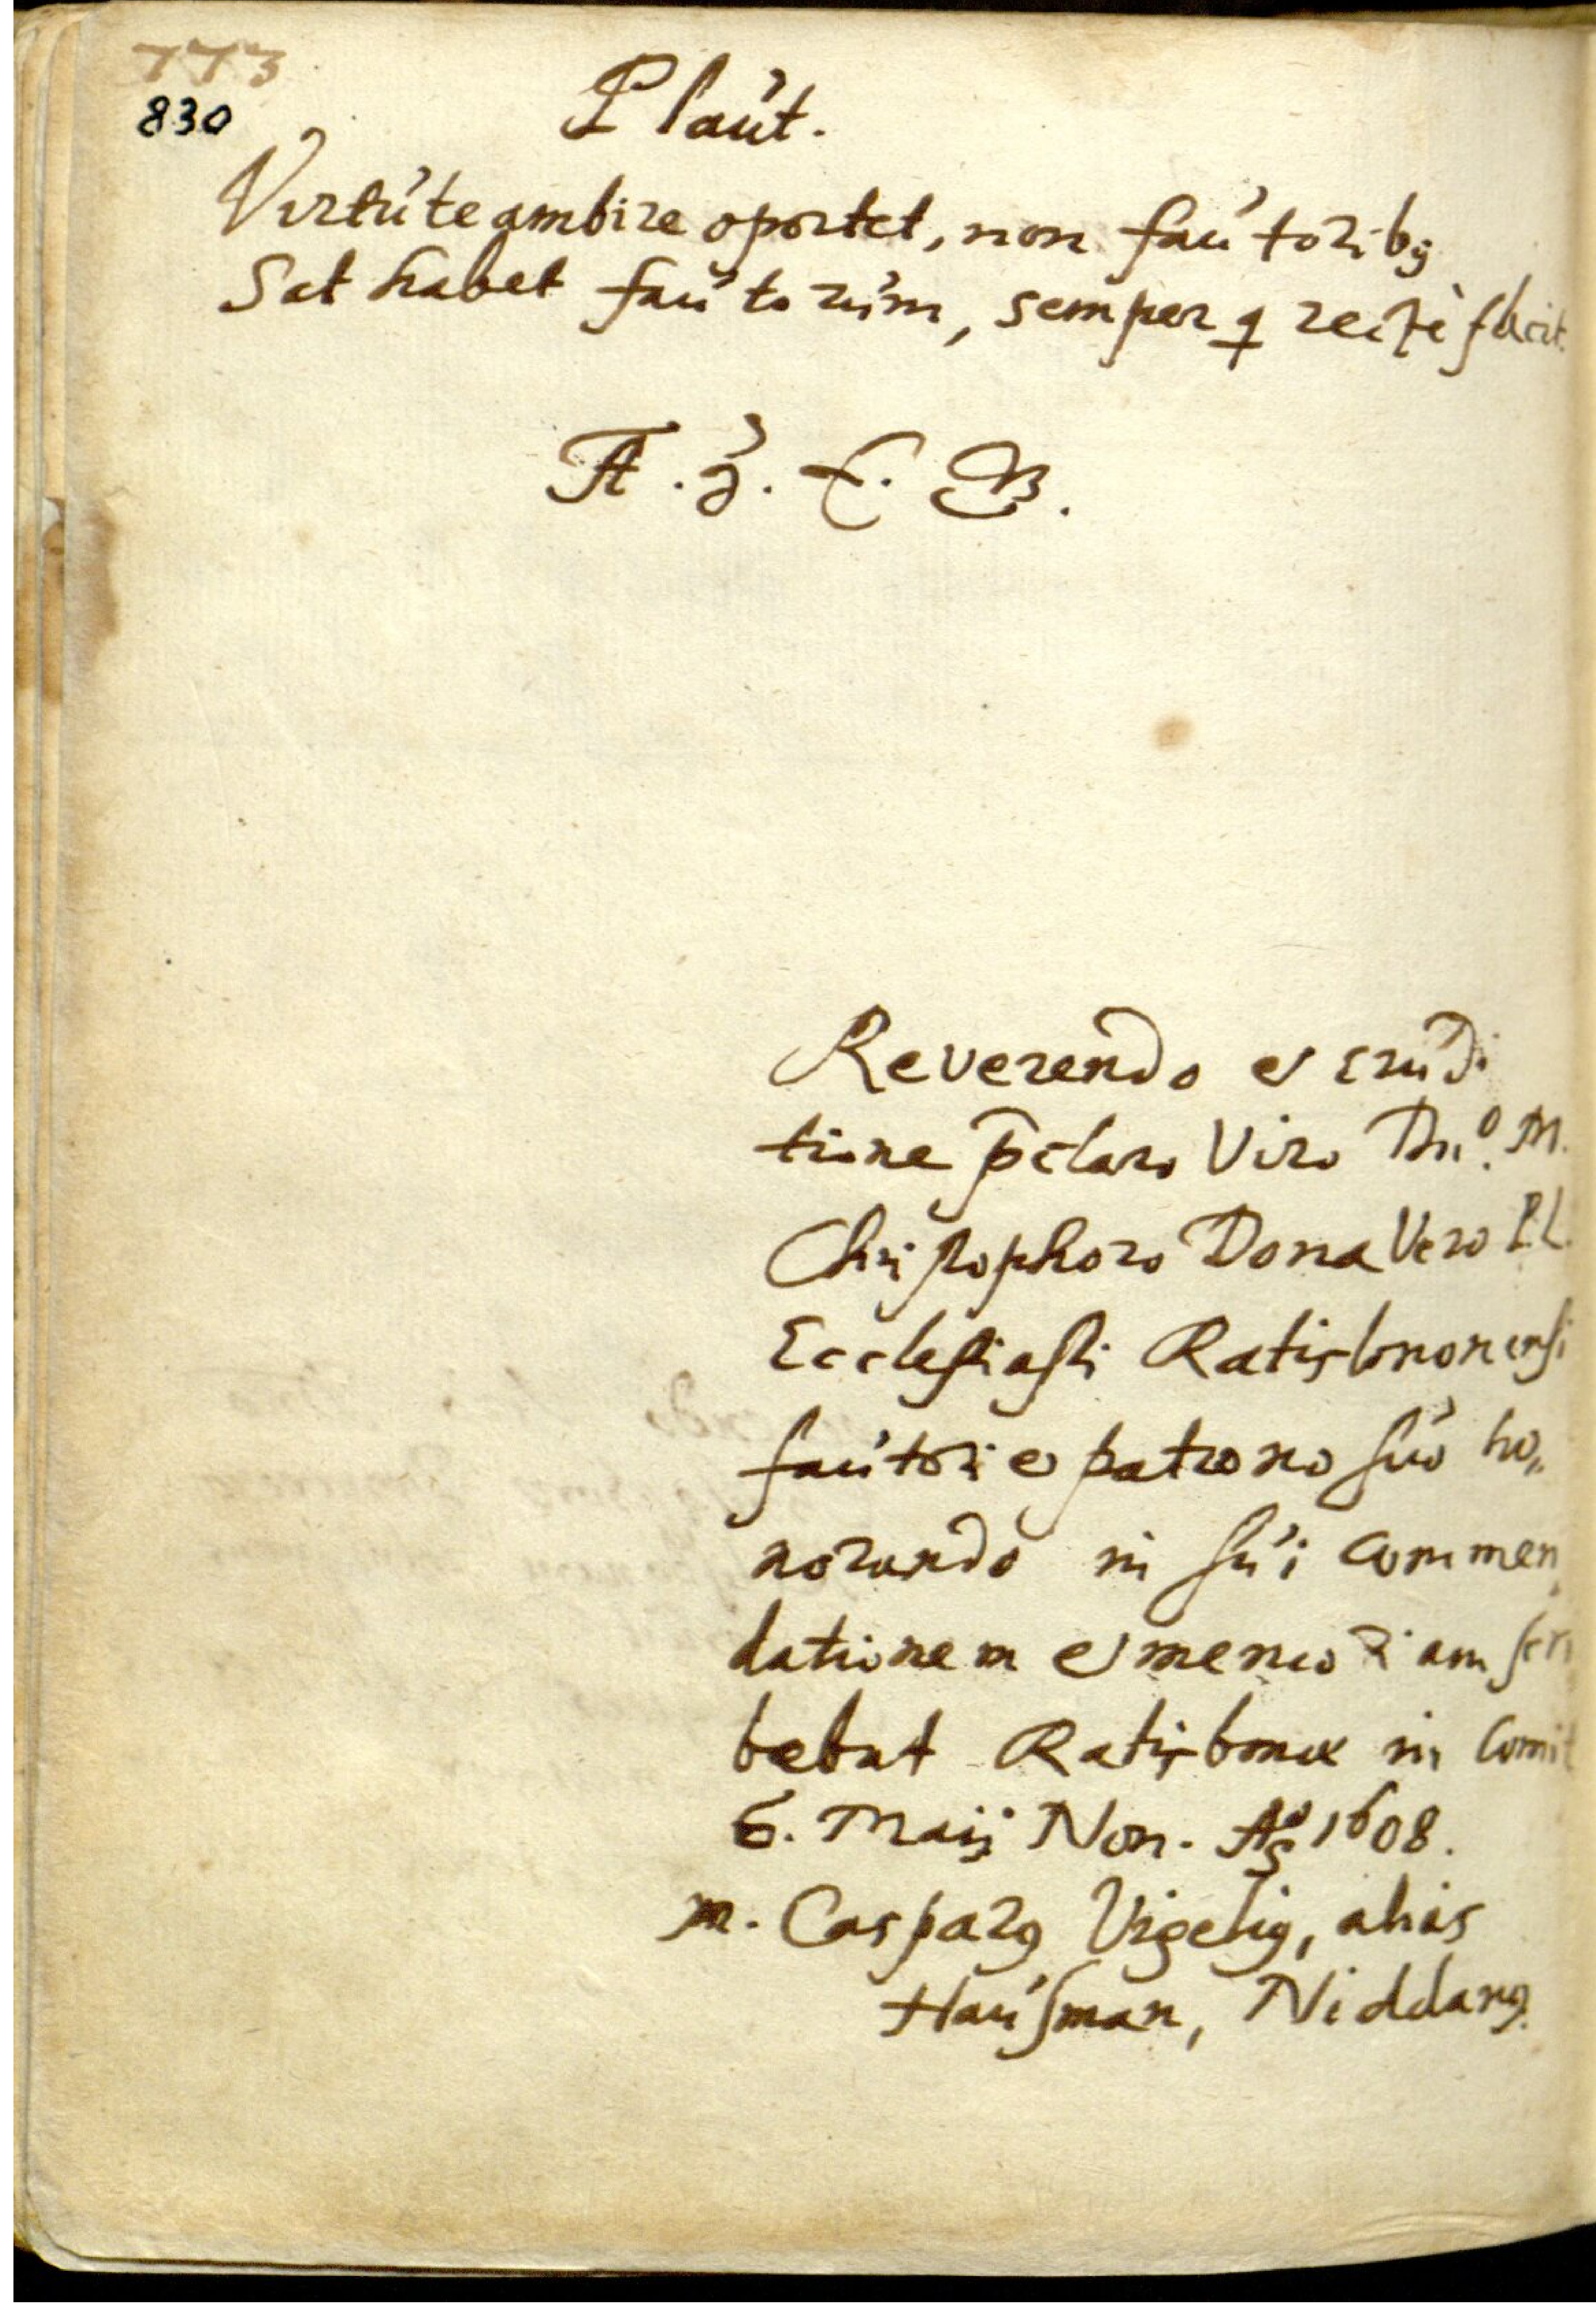 773
830
Plaut.
Virtute ambire oportet, non fautoribꝰ
Sat habet fautorum, semper q rectè facit.
A. Z. E. B.
Reverendo et erudi
tione p̄claro Viro Dn͂o. M.
Christophoro Donavero P.L.
Ecclesiasti Ratisbonensi
fautori et patrono suo ho„
norando in sui commen
dationem et memoriam scri
bebat Ratisbonæ in Comit
6. Maij Non. Aõ 1608.
M. Casparꝰ Vigeliꝰ, alias
Hausman, Niddanꝰ.